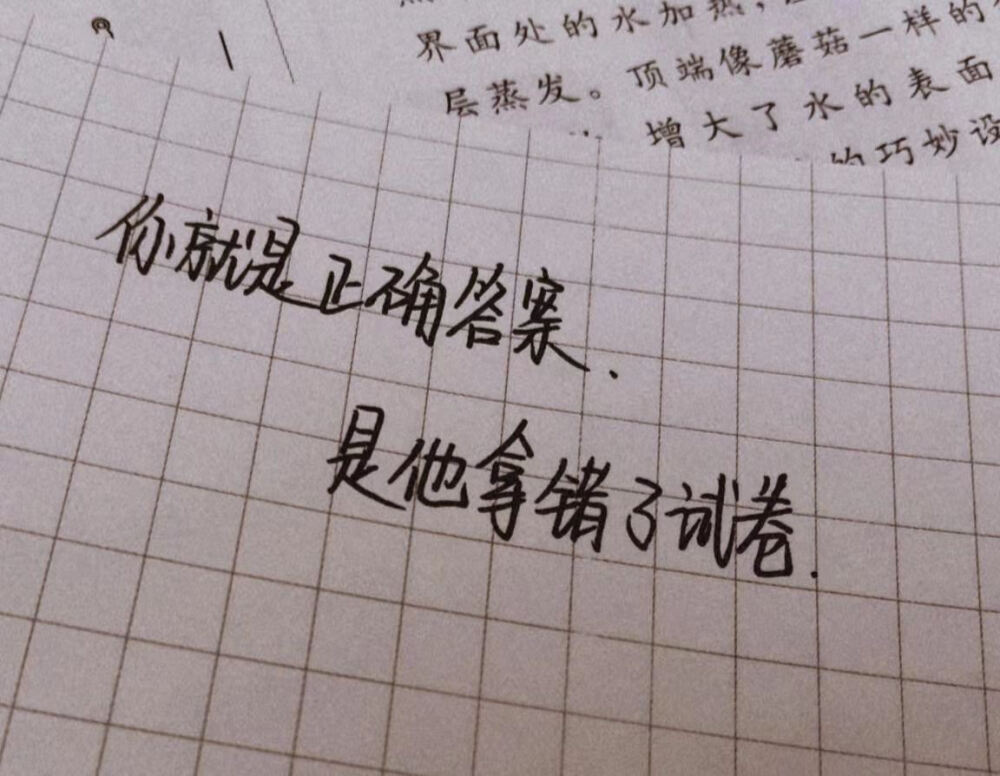 界面处的水加热，
层蒸发。顶端像蘑菇一样的
增大了水的表面
的巧妙设
你就是正确答案.
是他拿错了试卷.